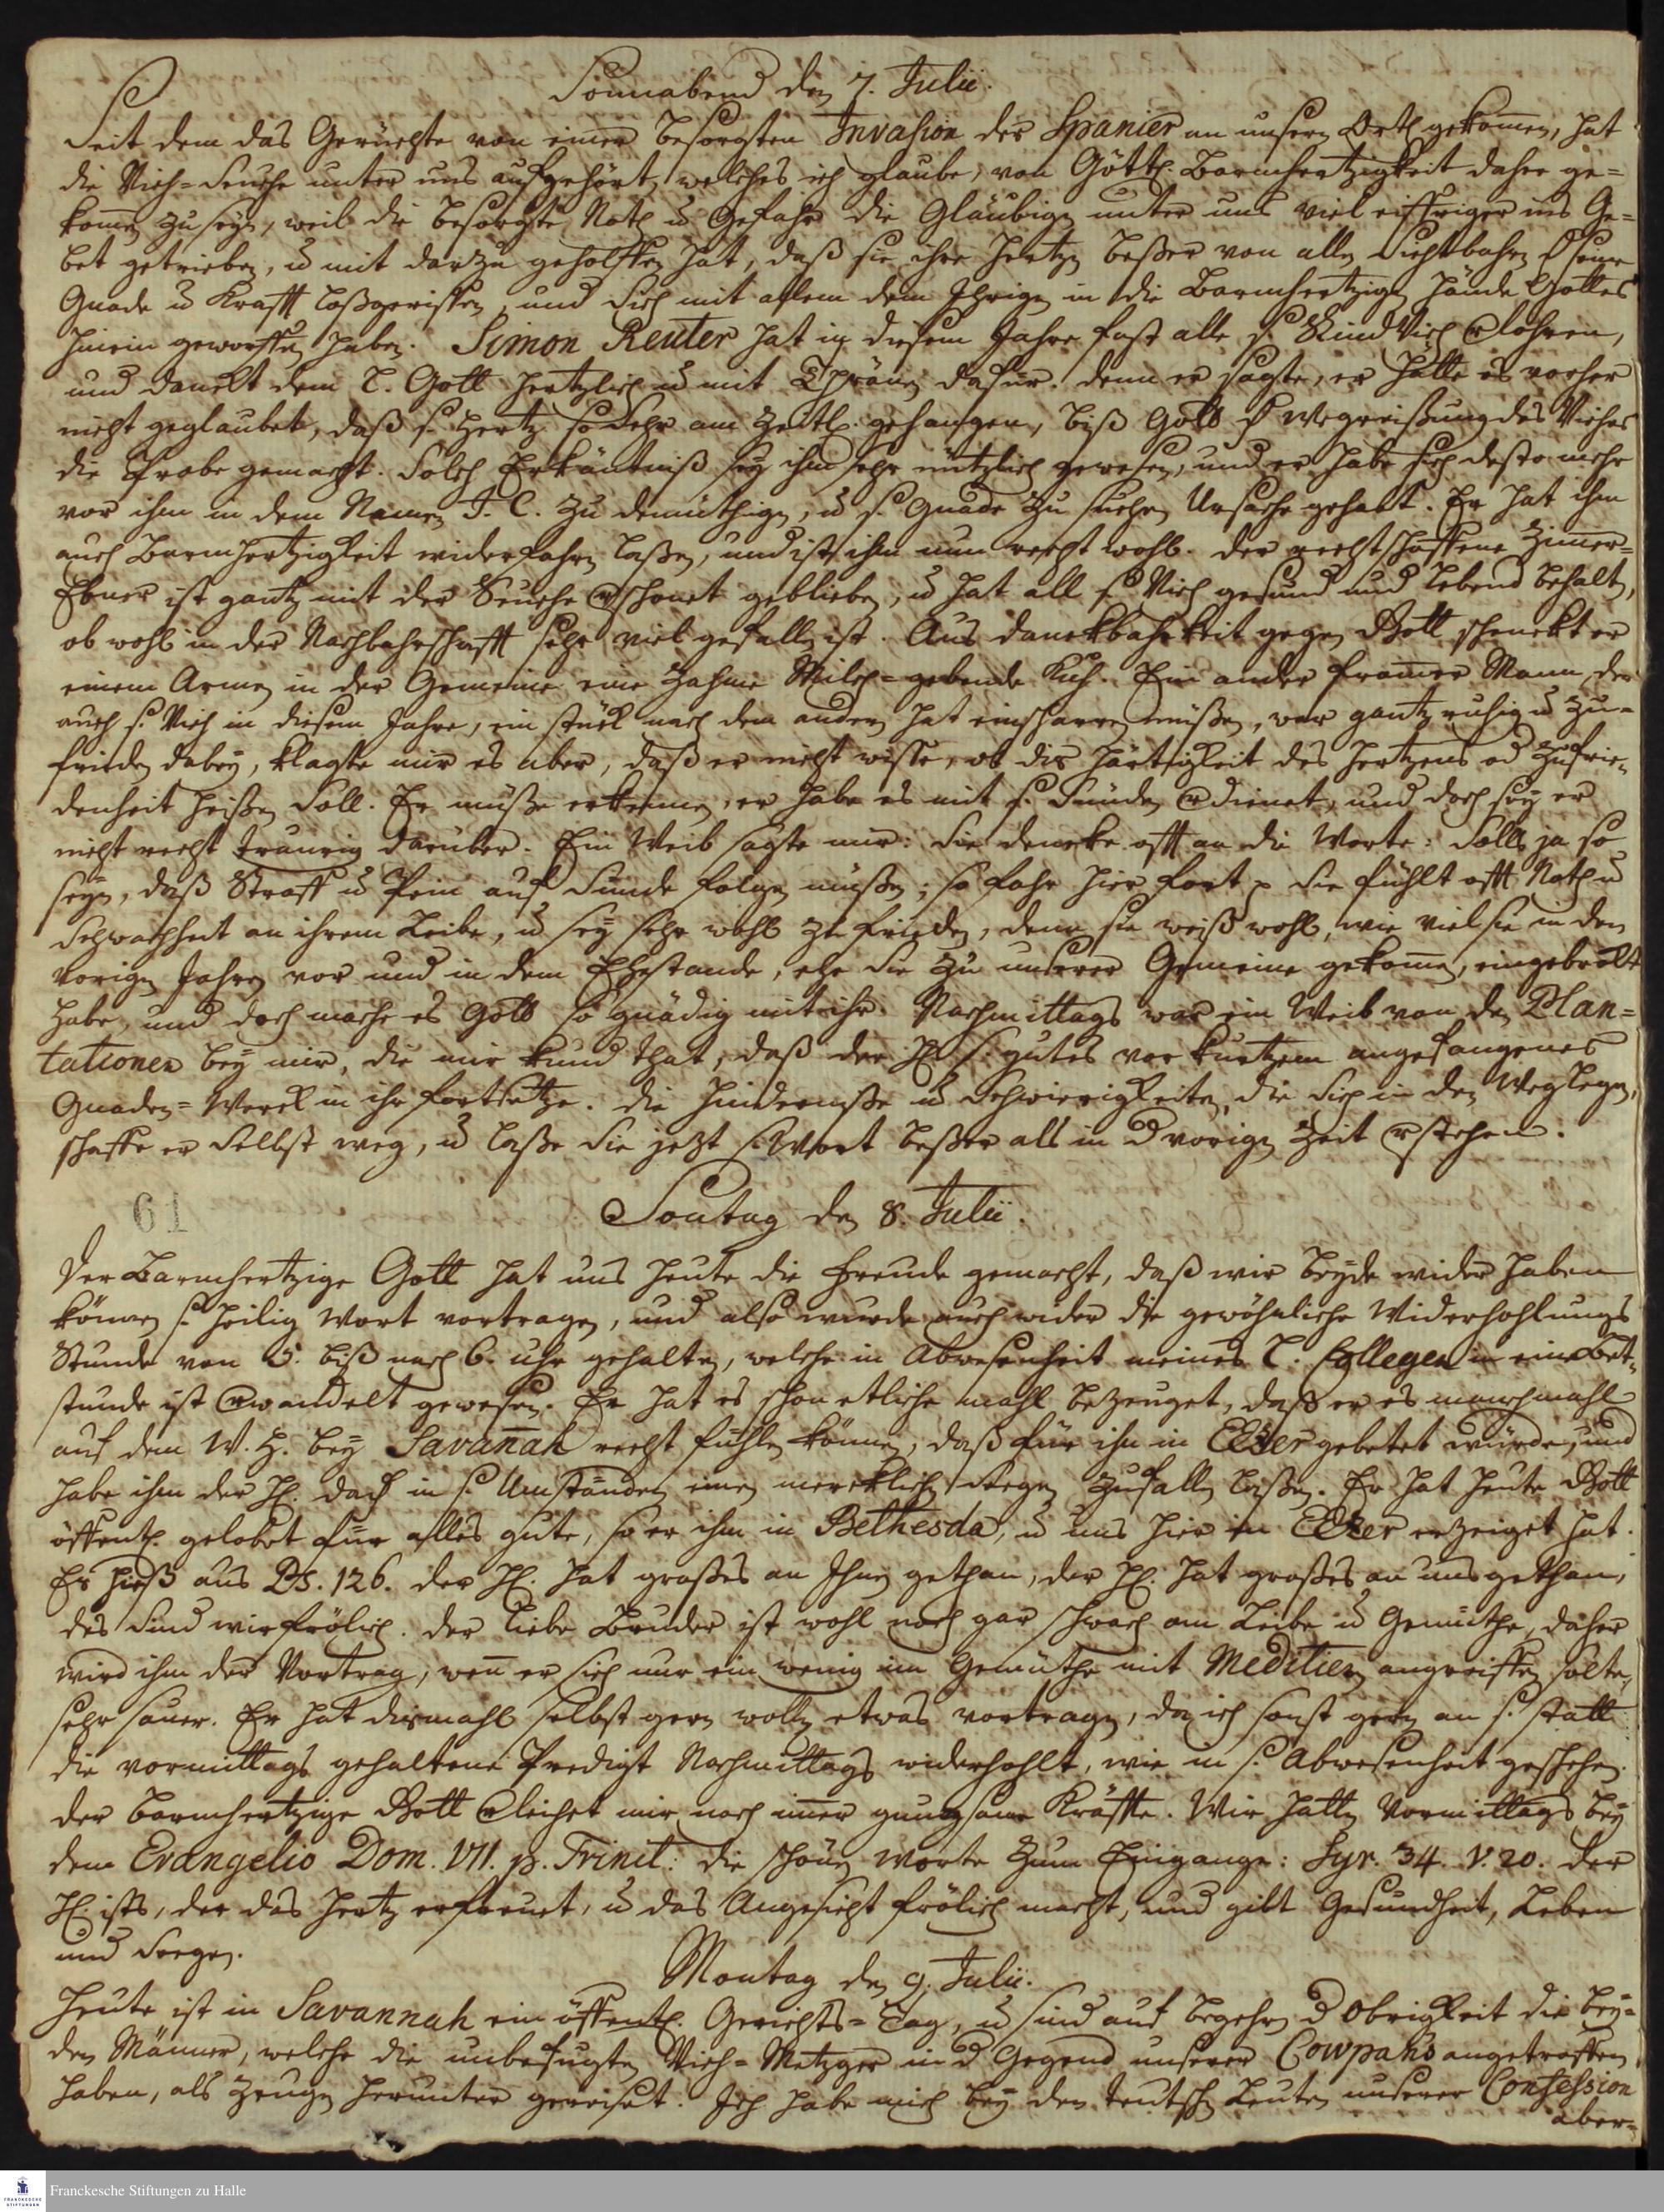 Sonnabend den 7. Julii.
Seit dem das Gerüchte von einer besorgten Invasion der Spanier an unsern Orth gekom̄en, hat
die Vieh-Seuche unter uns aufgehört, welches ich glaube, von Göttl. Barmhertzigkeit daher ge-
kom̄en zu seyn, weil die besorgte Noth u. Gefahr die Gläubigen unter uns viel eiffriger ins Ge-
bet getrieben, u. mit darzu geholffen hat, daß sie ihre Hertzen beßer von allen Sichtbahren seine
Gnade u. Krafft loßgerissen, und sich mit allem dem Ihrigen in die Barmhertzigen Hände Gottes
hinein geworffen haben. Simon Reuter hat in diesem Jahre fast alle s. Rind Vieh verlohren,
und danckt dem l. Gott hertzlich u. mit Thränen dafür. denn er sagte, er hätte es vorher
nicht geglaubet, daß s. Hertz so sehr am Zeitl. gehangen, biß Gott durch Wegreißung des Viehes
die Probe gemacht. Solch Erkäntniß sey ihm sehr nützlich gewesen, und er habe sich desto mehr
vor ihm in dem Namen J. C. zu demüthigen, u. s. Gnade zu suchen Ursache gehabt. Er hat ihm
auch Barmhertzigkeit widerfahren laßen, und ist ihm nun recht wohl. der rechtschaffene Zim̄er-
Ebner ist gantz mit der Seuche verschonet geblieben, u. hat all s. Vieh gesund und lebend behalten,
ob wohl in der Nachbahrschafft sehr viel gefallen ist. Aus danckbahrkeit gegen Gott schenckt er
einem Armen in der Gemeine eine zahme Milch-gebende Kuh. Ein ander from̄er Mann, der
auch s. Vieh in diesem Jahre, ein stück nach dem andern hat einscharren müßen, war gantz ruhig u. zu-
frieden dabey, klagte mir es aber, daß er nicht wisse, ob dis Härtigkeit des Hertzens od Zufrie-
denheit heißen soll. Er müße erkennen, er habe es mit s. Sünden verdienet, und doch sey er
nicht recht traurig darüber. Ein Weib sagte mir: Sie dencke offt an die Worte: Solls ja so
seyn, daß Straff u. Pein auf Sünde folgen müßen; so fahr hier fort p Sie fühlt offt Noth u.
Schwachheit an ihrem Leibe, u. sey sehr wohl zu frieden, denn sie weiß wohl, wie viel sie in den
vorigen Jahren vor und in dem Ehestande, ehe sie zu unserer Gemeine gekom̄en, eingebrockt
habe, und doch mache es Gott so gnädig mit ihr. Nachmittags war ein Weib von den Plan-
tationen bey mir, die mir kund that, daß der H. s. gutes vor kurtzem angefangenes
Gnaden-Werck in ihr fortsetze. die Hinderniße u. Schwierigkeiten, die sich in den Weg legen,
schaffe er selbst weg, u. laße sie jetzt s. Wort beßer als in d vorigen Zeit verstehen.
61
Sontag den 8. Julii.
Der Barmhertzige Gott hat uns heute die Freude gemacht, daß wir beyde wider haben
können s. heilig Wort vortragen, und also wurde auch wider die gewöhnliche Widerhohlungs
Stunde von 5. biß nach 6. uhr gehalten, welche in Abwesenheit meines l. Collegen in eine Bet-
stunde ist verwandelt gewesen. Er hat es schon etliche mahl bezeuget, daß er es manchmahl
auf dem W. H. bey Savan̄ah recht fühlen können, daß für ihn in EbEzer gebetet würde, und
habe ihm der H. dach in s. Umständen einen mercklichen Seegen zufallen laßen. Er hat heute Gott
öffentl. gelobet für alles gute, so er ihm in Bethesda, u. uns hier in EbEzer erzeiget hat.
Es hieß aus Ps. 126. der H. hat großes an Ihnen gethan, der H. hat großes an uns gethan,
des sind wir frölich. der liebe Bruder ist wohl noch gar schwach am Leibe u. Gemüthe, daher
wird ihm der Vortrag, wen̄ er sich nur ein wenig im Gemüthe mit Meditien angreiffen solte,
sehr sauer. Er hat dismahl selbst gern wollen etwas vortragen, da ich sonst gern an s. statt
die vormittags gehaltene Predigt Nachmittags widerhohlt, wie in s. Abwesenheit geschehen.
der barmhertzige Gott verleihet mir noch im̄er gnugsame Kräffte. Wir hatten Vormittags bey
dem Evangelio Dom. VII. p. Trinit: die schönen Worte zum Eingange: Syr. 34. v. 20. der
H. ists, der das Hertz erfreuet, u. das Angesicht frölich macht, und gibt Gesundheit, Leben
und Seegen.
Montag den 9. Julii.
Heute ist in Savannah ein öffentl. Gerichts-Tag, u. sind auf begehren d Obrigkeit die bey-
den Männer, welche die unbefugten Vieh-Metzger in d Gegend unserer Cowpahs angetroffen
haben, als Zeugen herunter gereiset. Ich habe mich bey den teutschen Leuten unserer Confession
aber-
Franckesche Stiftungen zu Halle
FRANCKESCHE STIFTUNGEN